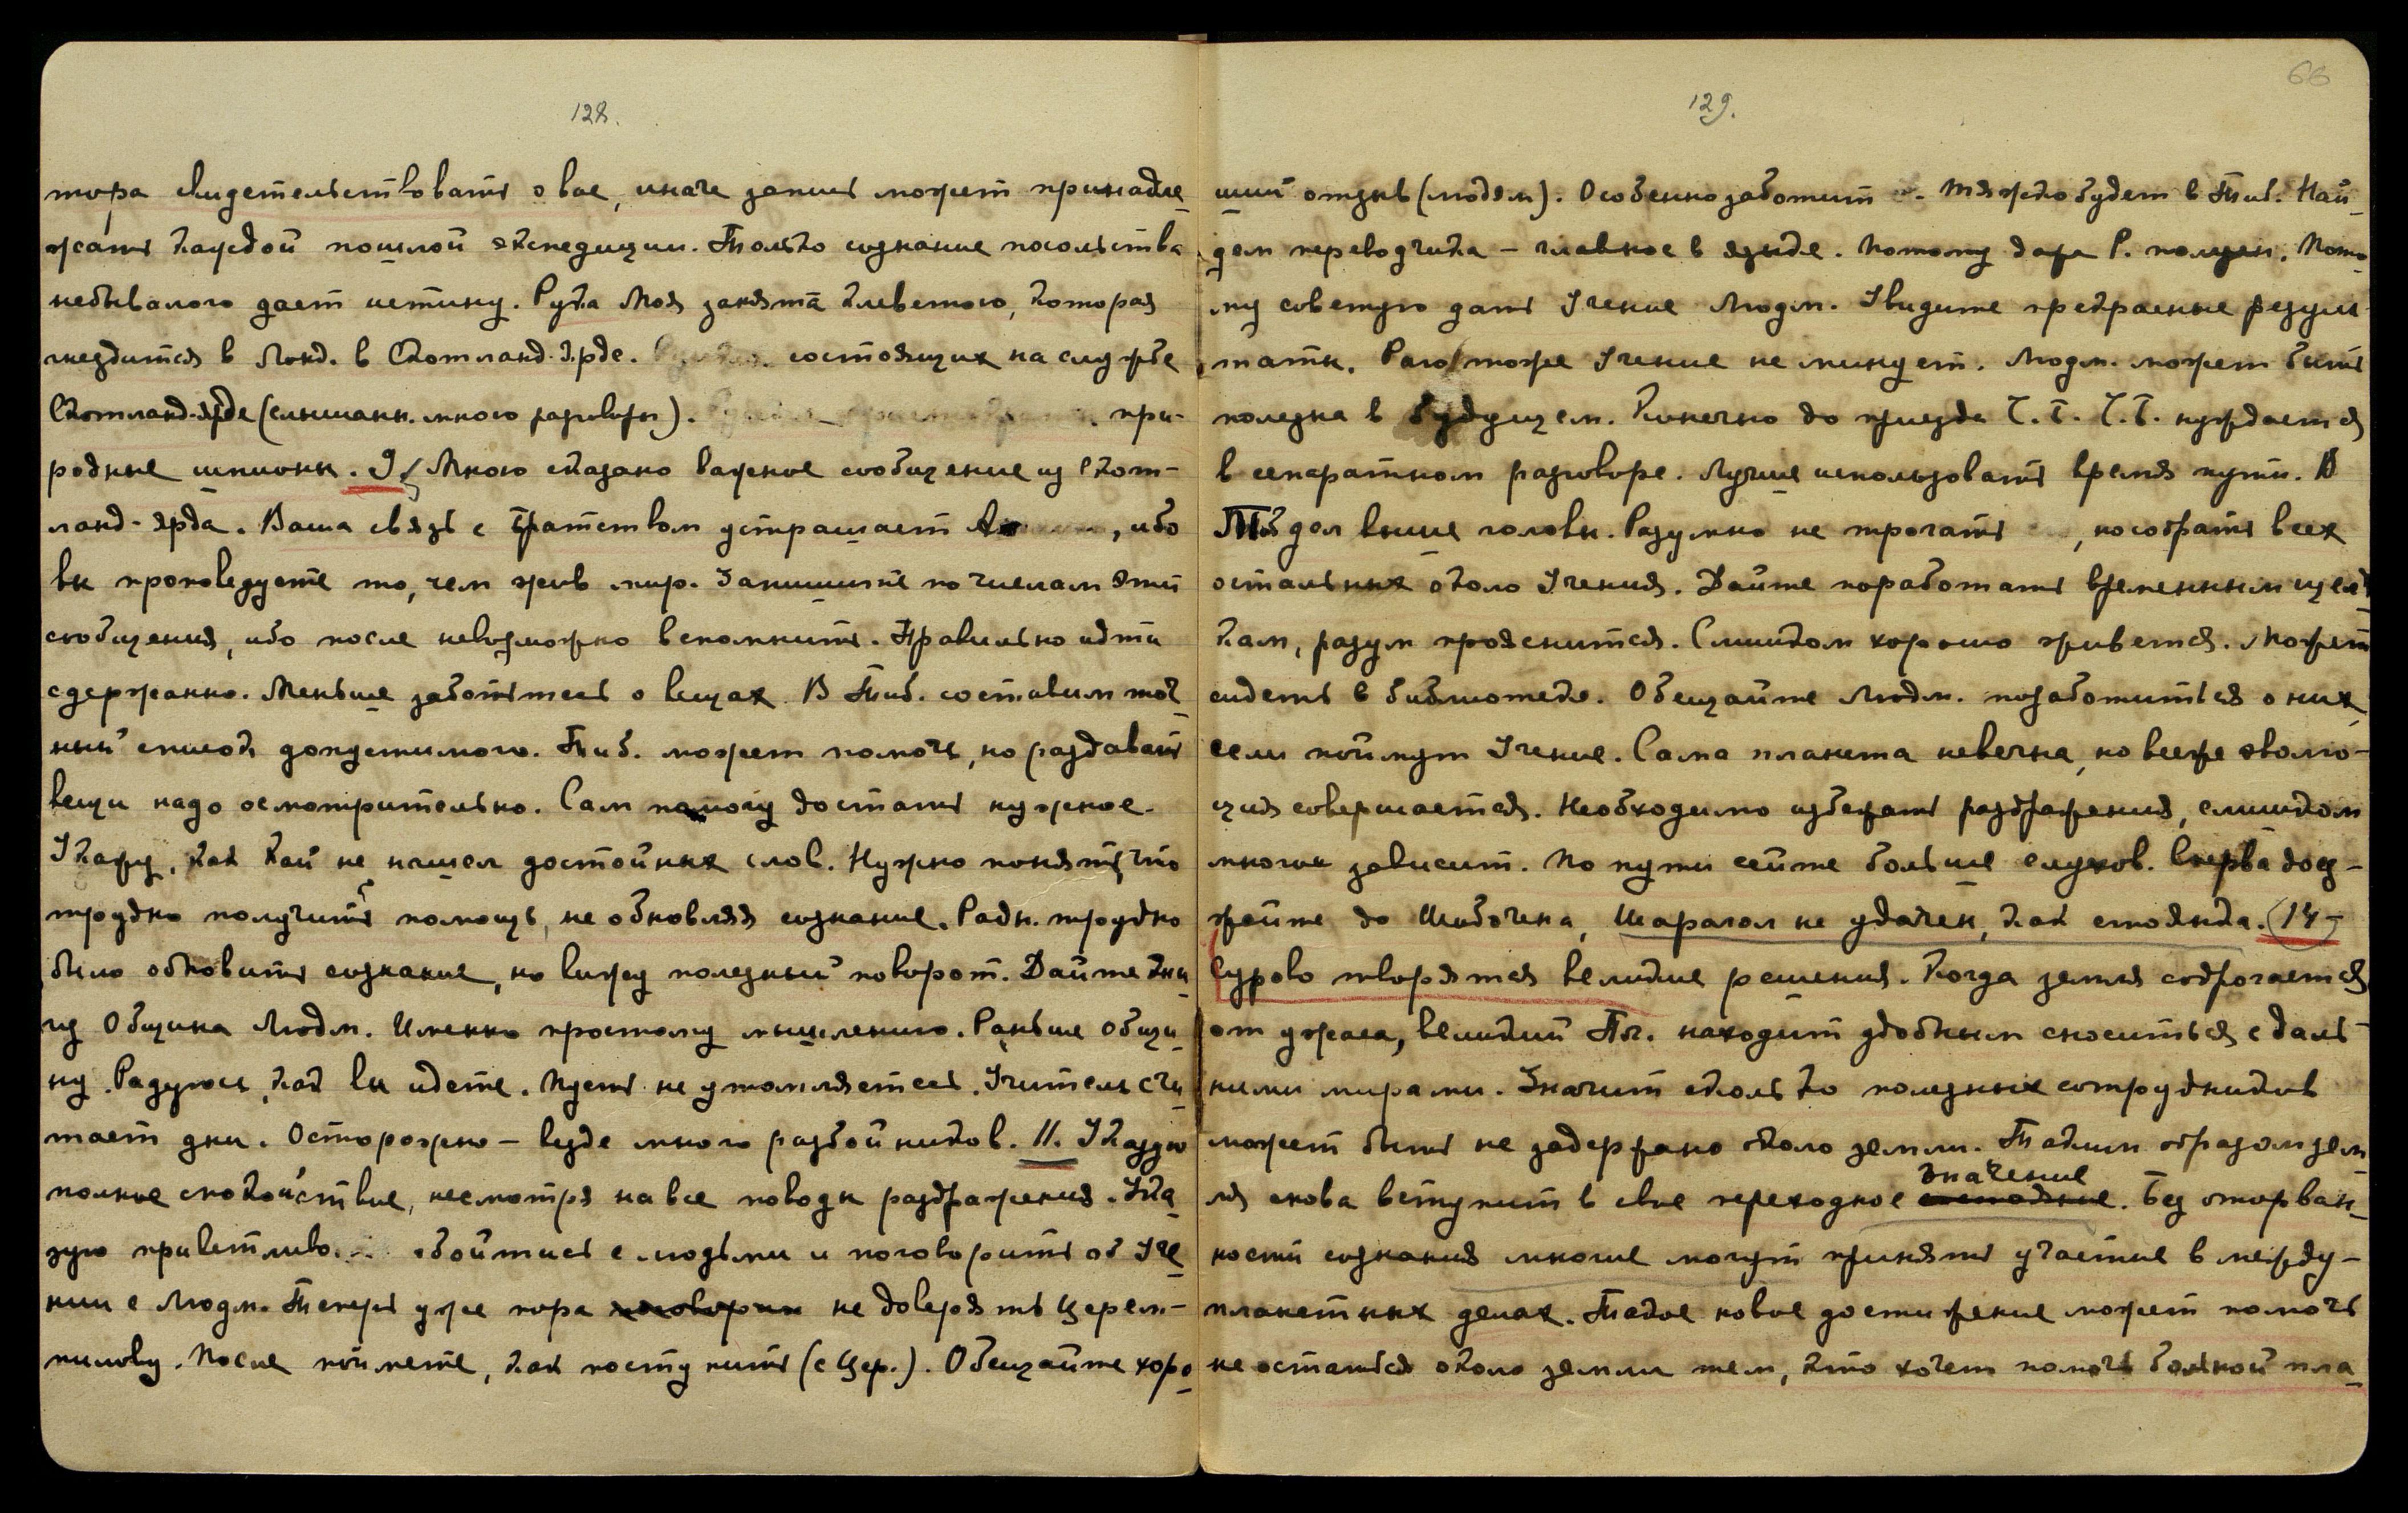 128.
тора свидетельствовать о вас, иначе запись может принадле-
жать каждой пошлой экспедиции. Только сознание посольства
небывалого дает истину. Рука Моя занята клеветою, которая
гнездится в Лонд. в Скотланд-Ярде. состоящих на службе
Скотланд-Ярде (слышанн. много разговоры). при-
родные шпионы. 9 Мною сказано важное сообщение из Скот-
ланд-Ярда. Ваша связь с Братством устрашает , ибо
вы проповедуете то, чем жив мир. Запишите по числам эти
сообщения, ибо после невозможно вспомнить. Правильно идти
сдержанно. Меньше заботьтесь о вещах. В Тиб. составим точ-
ный список допустимого. Тиб. может помочь, но раздавать
вещи надо осмотрительно. Сам помогу достать нужное.
Укажу, как Кай не нашел достойных слов. Нужно понять, что
трудно получить помощь, не обновляя сознание. Радн. трудно
было обновить сознание, но вижу полезный поворот. Дайте кни-
гу Община Людм. Именно простому мышлению. Раньше Общи-
ну. Радуюсь, как вы идете. Пусть не утомляетесь. Учитель счи-
тает дни. Осторожно – везде много разбойников. 11. Указую
полное спокойствие, несмотря на все поводы раздражения. Ука-
зую приветливо обойтись с людьми и поговорить об Уче-
нии с Людм. Теперь уже пора не доверять Церем-
пилову. После поймете, как поступить (с Цер.). Обещайте хоро-
66
129.
ший отзыв (людям). Особенно заботит . Тяжко будет в Тиб. Най-
дем переводчика – главное в языке. Потому даже Р. полезн. Пото-
му советую дать Учение Людм. Увидите прекрасные резуль-
таты. Раго тоже Учение не минует. Людм. может быть
полезна в будущем. Конечно до приезда Ч.Т. Ч.Т. нуждается
в сепаратном разговоре. Лучше использовать время пути. В
Тиб дел выше головы. Разумно не трогать , но собрать всех
остальных около Учения. Дайте поработать временным щел-
кам, разум прояснится. Слишком хорошо живется. Может
сидеть в библиотеке. Обещайте Людм. позаботиться о них,
если поймут Учение. Сама планета невечна, но все же эволю-
ция совершается. Необходимо избежать раздражения, слишком
многое зависит. По пути сейте больше слухов. Сперва доез-
жайте до Шибочена, Шарагол не удачен, как стоянка. (14–
Сурово творятся великие решения. Когда земля содрогается
от ужаса, великий Пл. находит удобным сноситься с даль-
ними мирами. Значит сколько полезных сотрудников
может быть не задержано около земли. Таким образом зем-
ля снова вступит в свое переходное значение. Без оторван-
ности сознания многие могут принять участие в между-
планетных делах. Такое новое достижение может помочь
не остаться около земли тем, кто хочет помочь больной пла-